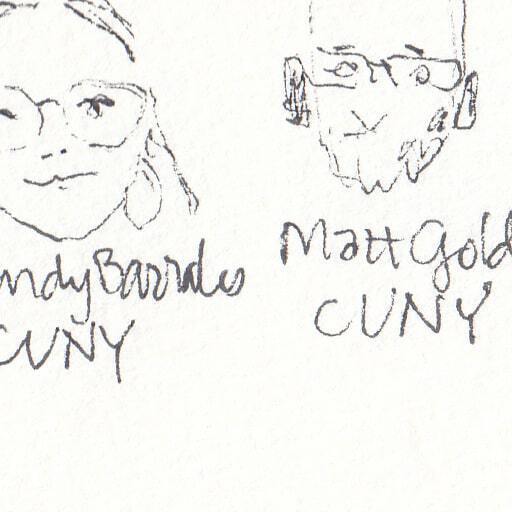 ndy Barrales
CUNY
Matt Gold
CUNY